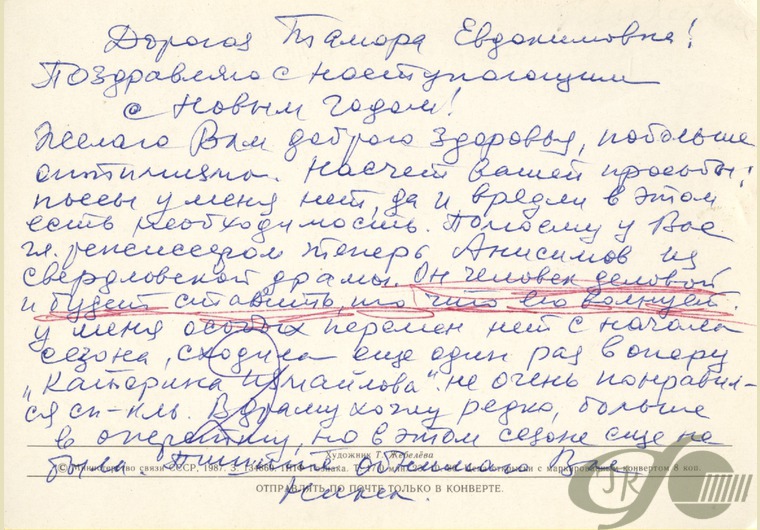 Дорогая Тамара Евдокимовна!
Поздравляю с наступающим
с Новым годом!
Желаю Вам доброго здоровья, побольше
оптимизма. Насчет Вашей просьбы:
пьесы у меня нет, да и врядли в этом
есть необходимость. Помоему у Вас
гл. режиссером теперь Анисимов из
свердловской драмы. Он человек деловой
и будет ставить, то что его волнует.
У меня особых перемен нет с начала
сезона, сходила еще один раз в оперу
„Катерина Измайлова". не очень понравил-
ся сп-кль. В драму хожу редко, больше
в оперетту, но в этом сезоне еще не
Художник Т. Жебелёва
© Министерство связи СССР, 1987. З.
с маркированным конвертом 8 коп.
была. Пишите. Целую Вас
ОТПРАВЛЯТЬ ПО ПОЧТЕ ТОЛЬКО В КОНВЕРТЕ.